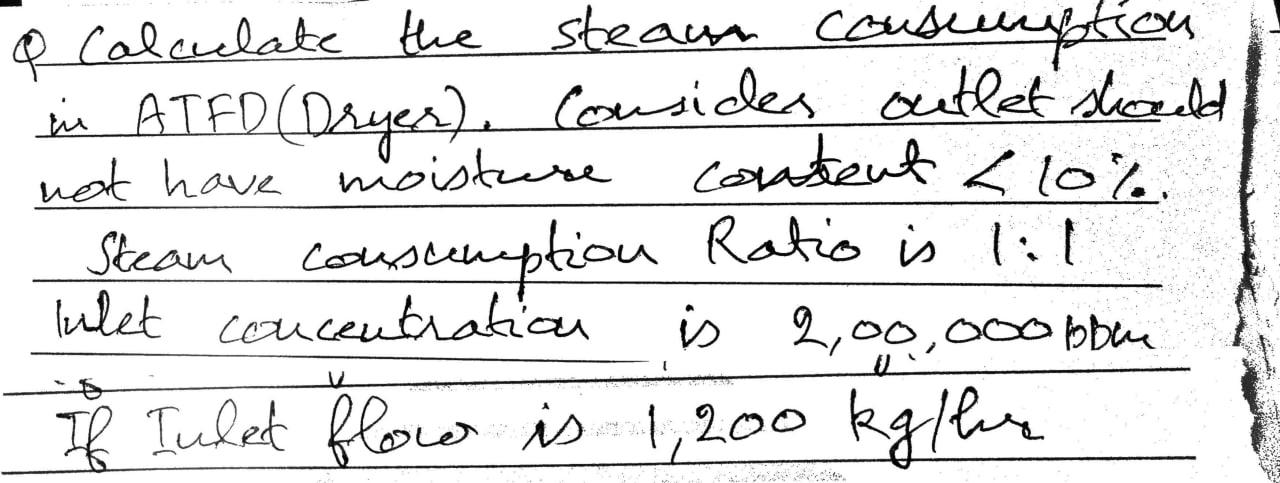 Q Calculate the steam consumption
in ATFD(Dryer). Consider outlet should
not have moisture content < 10%.
Steam consumption Ratio is 1:1
Inlet concentration is 2,00,000 ppm
If Inlet flow is 1,200 kg/hr